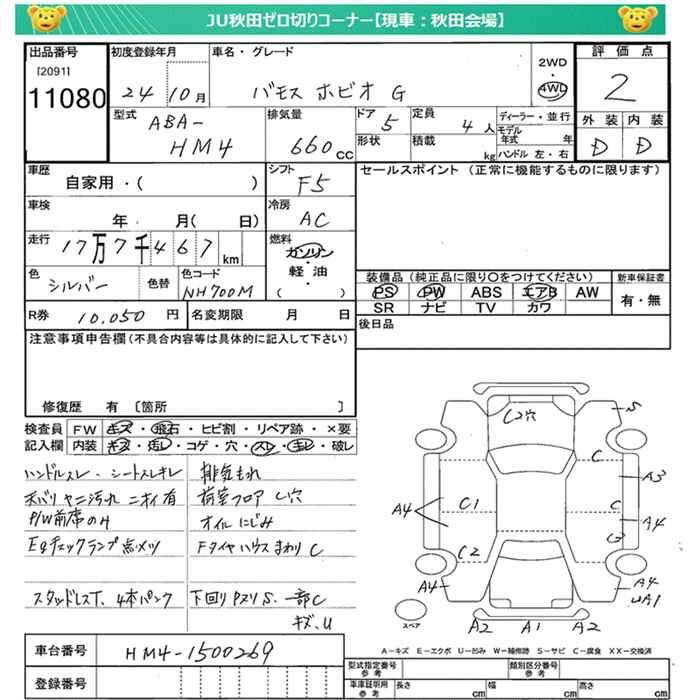 JU秋田ゼロ切りコーナー【現車：秋田会場】
出品番号
[2091]
11080
初度登録年月
24 10月
車名・グレード
バモス ホビオ G
2WD
・
4WD
評価点
2
外装 内装
D D
型式
ABA-
HM4
排気量
660cc
ドア
5
形状
定員
4人
積載
kg
ディーラー・並行
モデル年式 年
ハンドル 左・右
車歴
自家用・( )
シフト
F5
セールスポイント (正常に機能するものに限ります)
車検
年 月( 日)
冷房
AC
走行
17万7千467km
燃料
ガソリン
・
軽油
・
( )
色
シルバー
色替
色コード
NH700M
装備品(純正品に限り〇をつけてください)
PS PW ABS エアB AW
SR ナビ TV カワ
新車保証書
有・無
R券 10,050円
名変期限 月 日
後日品
注意事項申告欄(不具合内容等は具体的に記入して下さい)
修復歴 有 〔箇所 〕
検査員
記入欄
FW キズ・飛石・ヒビ割・リペア跡・×要
内装 キズ・汚レ・コゲ・穴・スレ・キレ・破レ
ハンドルスレ・シートスレキレ
天バリ ヤニ汚れ ニオイ有
P/W前席のみ
Egチェックランプ点メツ
スタッドレスT、4本パンク
排気もれ
荷室フロア C穴
オイルにじみ
FタイヤハウスまわりC
下回りPヌリS.一部C
キズ、U
C2穴
S
C
A3
A4
C1
C
A4
C3
C2
A4
A4
UA1
スペア
A2 A1 A2
A－キズ E－エクボ U－凹み W－補修跡 S－サビ C－腐食 XX－交換済
車台番号
HM4-1500269
登録番号
型式指定番号
参考
類別区分番号
参考
車庫証明用
参考
長さ cm
幅 cm
高さ cm